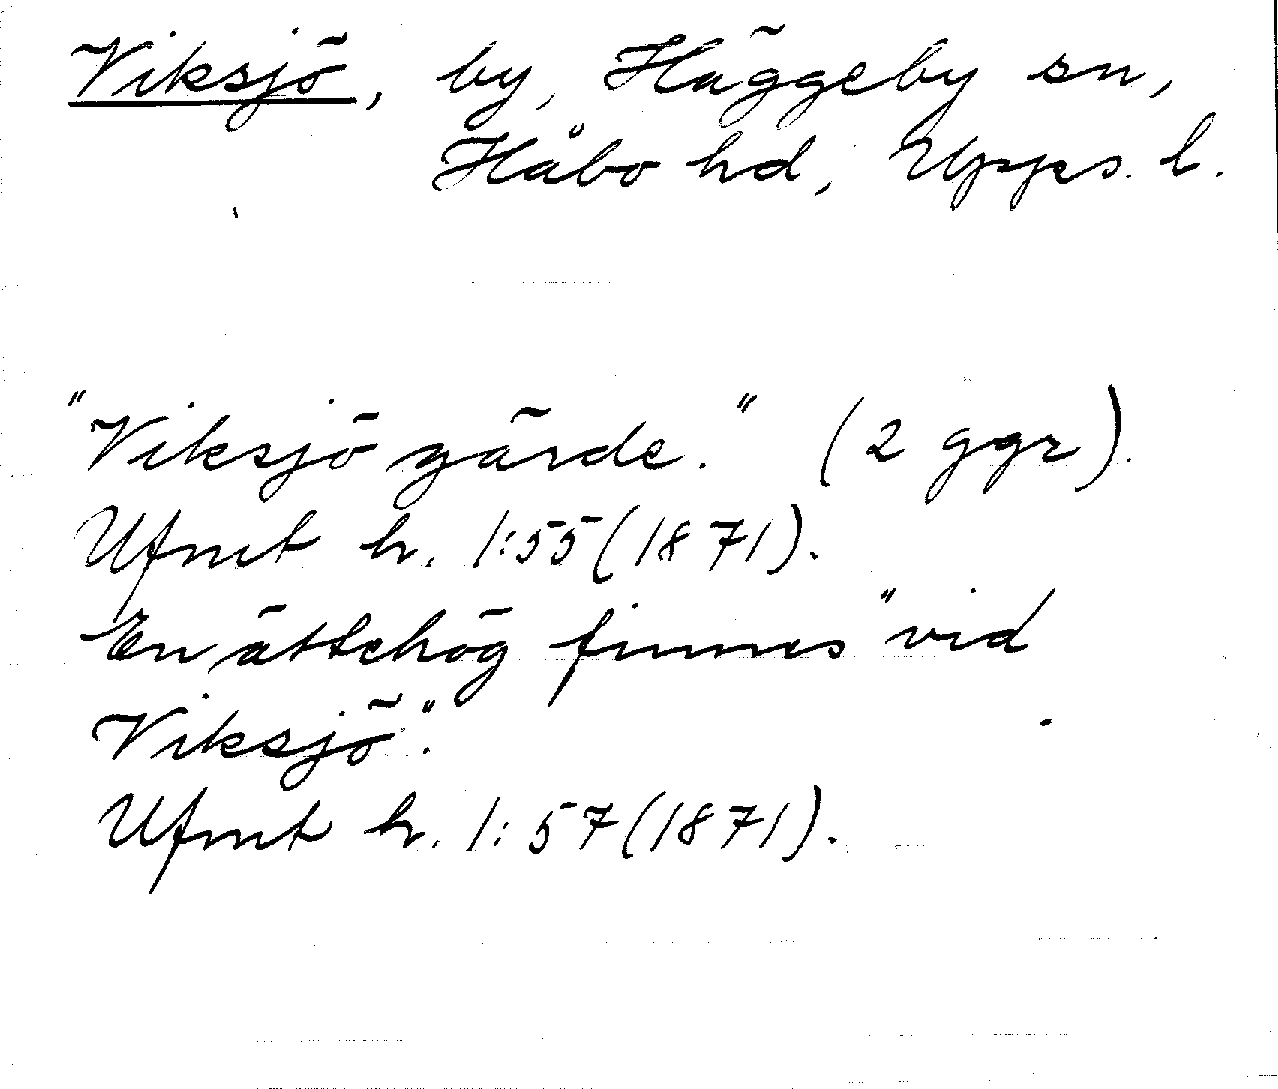 Viksjö, by, Häggeby sn,
Håbo hd, Upps. l.
"Viksjö gärde." (2 ggr).
Ufmt h. 1:55 (1871).
En ättehög finnes "vid
Viksjö".
Ufmt h. 1:57 (1871).